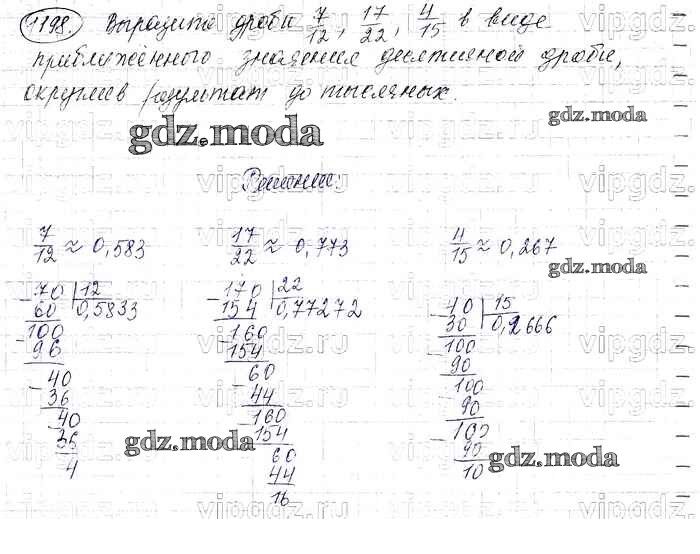 1198. Выразите дроби 7/12, 17/22, 4/15 в виде
приближённого значения десятичной дроби,
округлив результат до тысячных.
gdz.moda
gdz.moda
Решение:
7/12 ≈ 0,583
17/22 ≈ 0,773
4/15 ≈ 0,267
gdz.moda
70 | 12
- 60 0,5833
100
- 96
40
- 36
40
- 36
4
170 | 22
- 154 0,77272
160
- 154
60
- 44
160
- 154
60
- 44
16
40 | 15
- 30 0,2666
100
- 90
100
- 90
100
- 90
10
gdz.moda
gdz.moda
vipgdz.ru